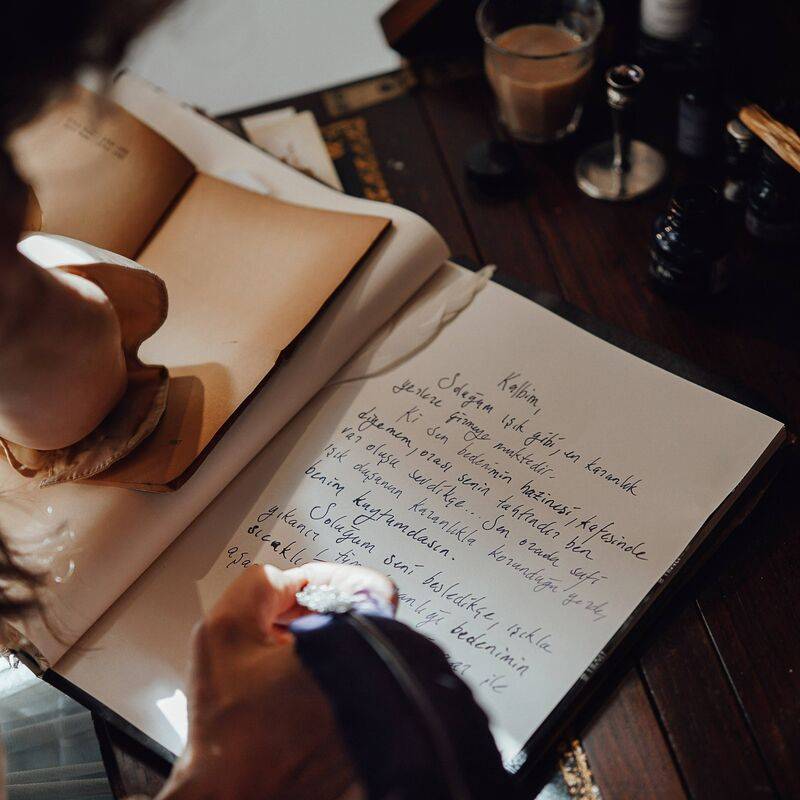 Kalbim,
Soluğum ışık gibi, en karanlık
yerlere girmeye muktedir.
Ki sen bedenimin hazinesi, kafesinde
diyemem, orası senin tahtındır ben
var oluşu sevdikçe... Sen orada safi
ışık duşunun karanlıkla korunduğu yerde,
benim kuytumdasın.
Soluğum seni besledikçe, ışıkla
yıkanır tüm bedenimin
ile